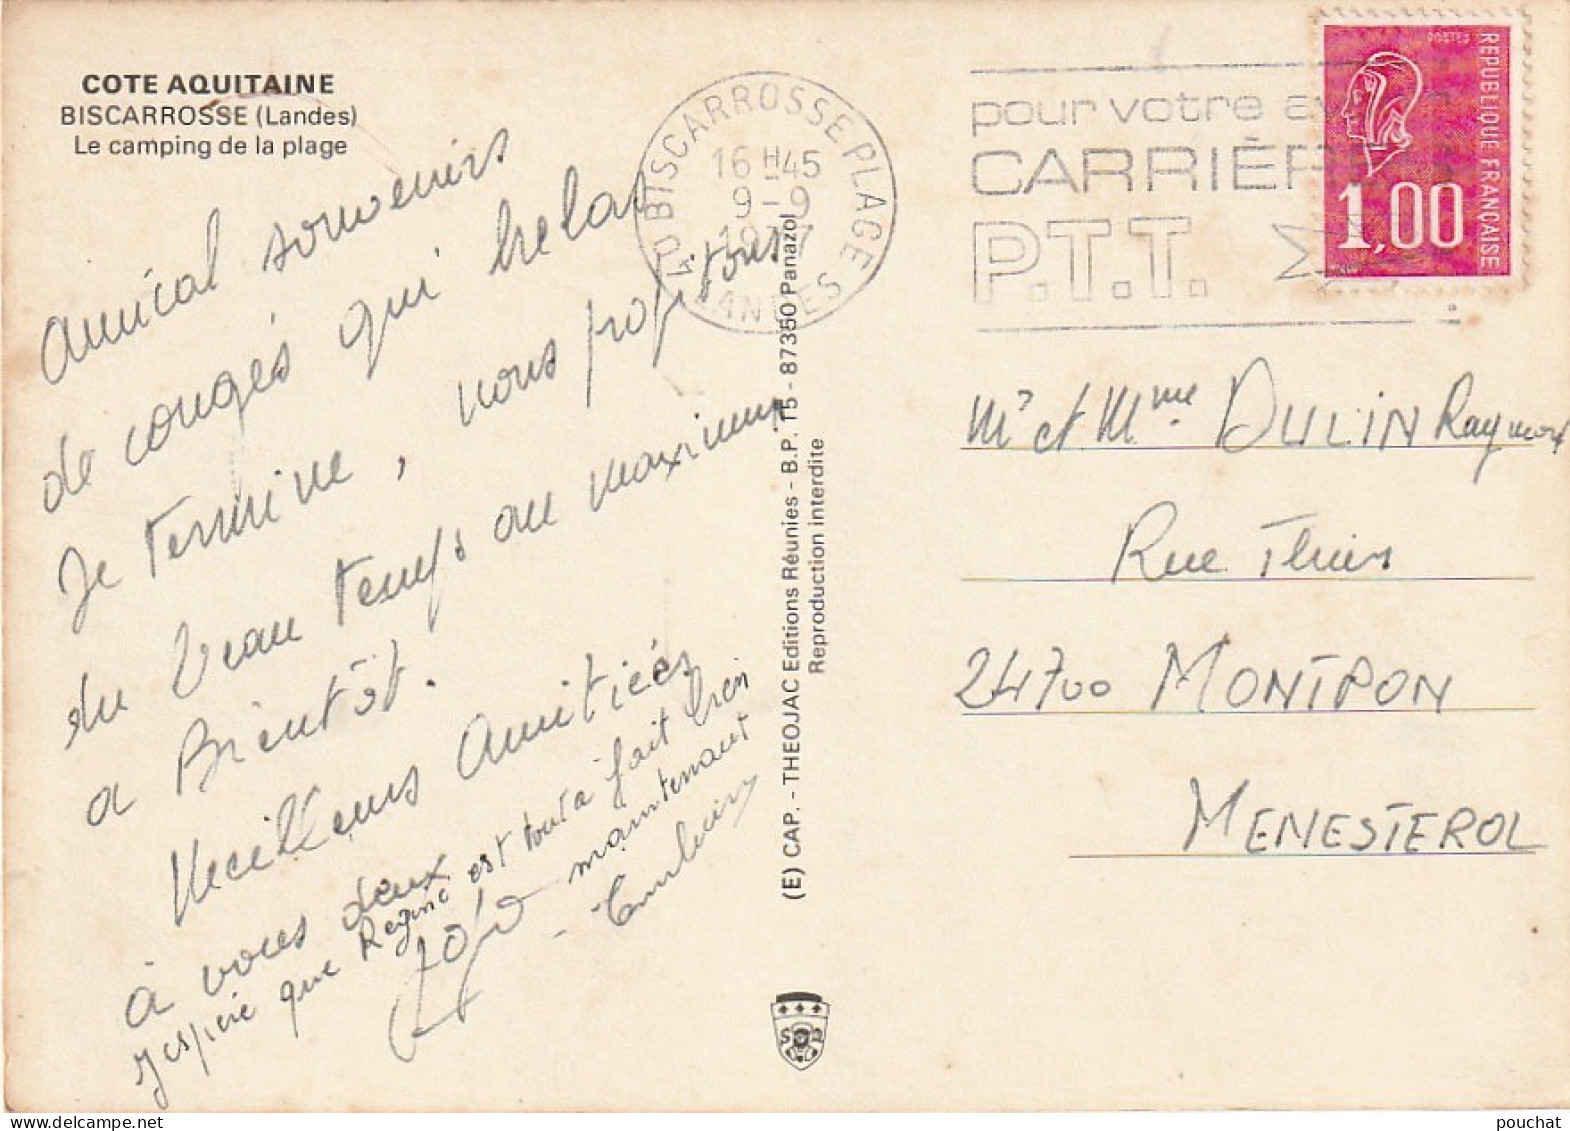 COTE AQUITAINE
BISCARROSSE (Landes)
Le camping de la plage
Amical souvenirs
de congés qui helas
se termine, nous profitons
du beau temps au maximum
a Bientôt.
Meilleurs Amitiées
à vous deux
J'espère que Regine est tout a fait bien
maintenant
(E) CAP. - THEOJAC Editions Réunies - B.P. 15 - 87350 Panazol
Reproduction interdite
40 BISCARROSSE PLAGE
16 H 45
9 - 9
1977
LANDES
pour votre
CARRIÈR
P.T.T.
POSTES
REPUBLIQUE FRANÇAISE
1,00
Mr et Mme DULIN Raymond
Rue Thiers
24700 MONTPON
MENESTEROL
pouchat